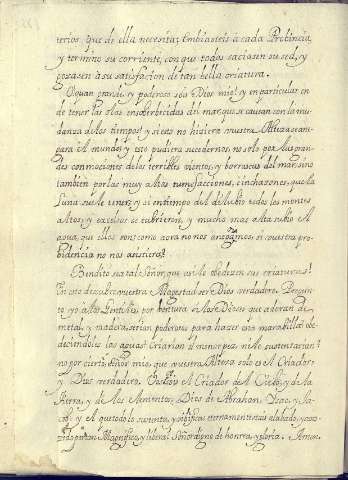 terios que de ella necesitaz Embiasteis a cada Probincia,
y termino su corriente, con que todos saciasen su sed, y
gozasen a su satisfacion de tan bella criatura.
O quan grande y poderoso sois Dios mio! y en particular en
de tener las olas ensoberbicidas del mar que se causan con la mu-
danza de los tiempos! y si esto no hiziera vuestra Alteza
el mundo y esto pudiera sucedernos no solo por las gran-
des conmociones de los terribles vientos, y borrascas del mar sino
tambien por las muy altas tumefacciones, e inchazones, que la
Luna suele tener y si en tiempo del delubio todos los montes
Altos y excelsos se cubrieron, y mucho mas alta subio el
agua, que ellos son: como aora no nos anegamos, si vuestra pro-
bidencia no nos asistiera?
Bendito sea tal Señor, que asi le obedezen sus criaturas!
En esto descubre vuestra Magestad ser Dios verdadero. Pregun-
to yo a los Gentiles, por bentura si los Dioses que adoran de
metal, y madera, serian poderosos para hazer esta marabilla? obe-
decianles las aguas? Criarian el menor pez, ni le sustentarian?
no por cierto Señor mio, que vuestra Alteza solo es el Criador
y Dios verdadero. Vos sois el Criador del Cielo, y de la
tierra, y de los Elementos; Dios de Abrahan, Isac, y Ja-
cob; y el que todo lo sustenta, y vibifica; eternamente seais alabado, y
Magnifico, y liberal Señor digno de honrra, y gloria. Amen.